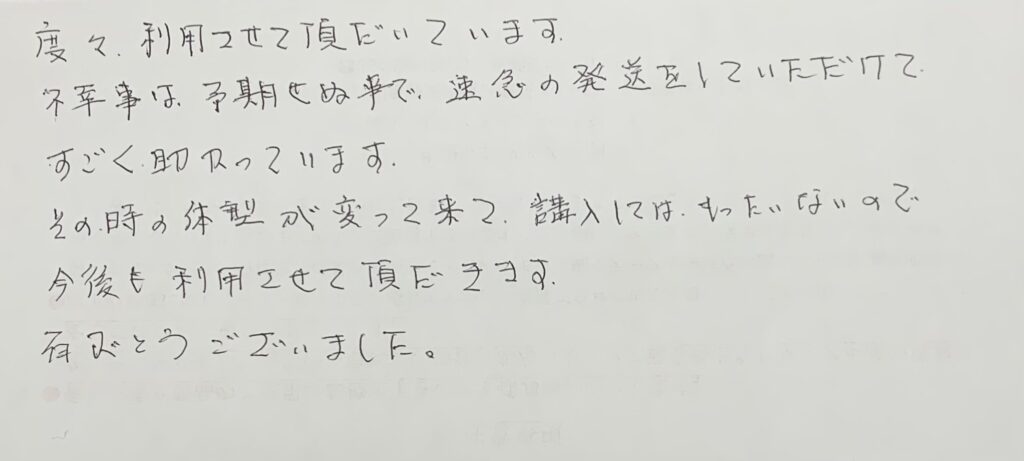 度々、利用させて頂だいています。
不幸事は、予期せぬ事で、速急の発送をしていただけて、
すごく助かっています。
その時の体型が変って来て、講入しては、もったいないので
今後も利用させて頂だきます。
有難とうございました。